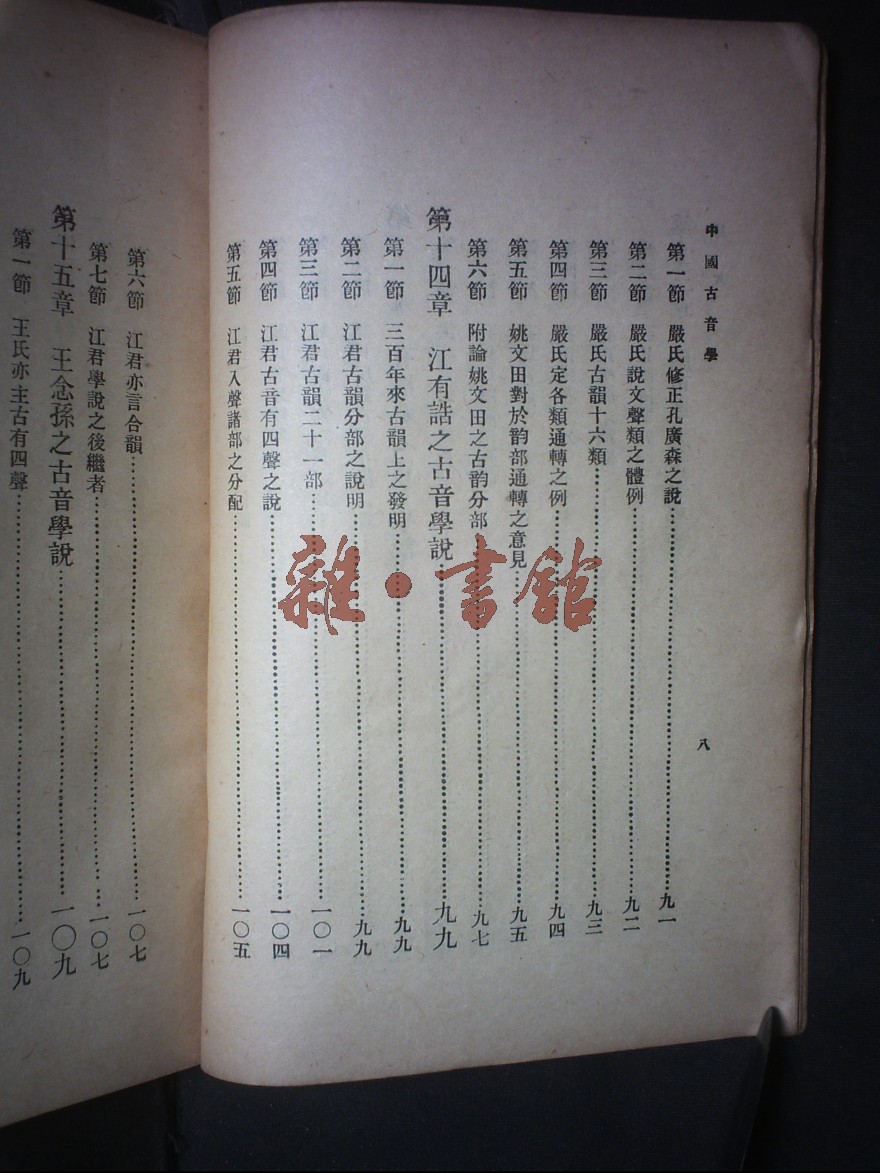 中國古音學
八
第一節　嚴氏修正孔廣森之說……九一
第二節　嚴氏說文聲類之體例……九二
第三節　嚴氏古韻十六類……九三
第四節　嚴氏定各類通轉之例……九四
第五節　姚文田對於韵部通轉之意見……九五
第六節　附論姚文田之古韵分部……九七
第十四章　江有誥之古音學說……九九
第一節　三百年來古韻上之發明……九九
第二節　江君古韻分部之說明……九九
第三節　江君古韻二十一部……一〇一
第四節　江君古音有四聲之說……一〇四
第五節　江君入聲諸部之分配……一〇五
第六節　江君亦言合韻……一〇七
第七節　江君學說之後繼者……一〇七
第十五章　王念孫之古音學說……一〇九
第一節　王氏亦主古有四聲……一〇九
雜·書館